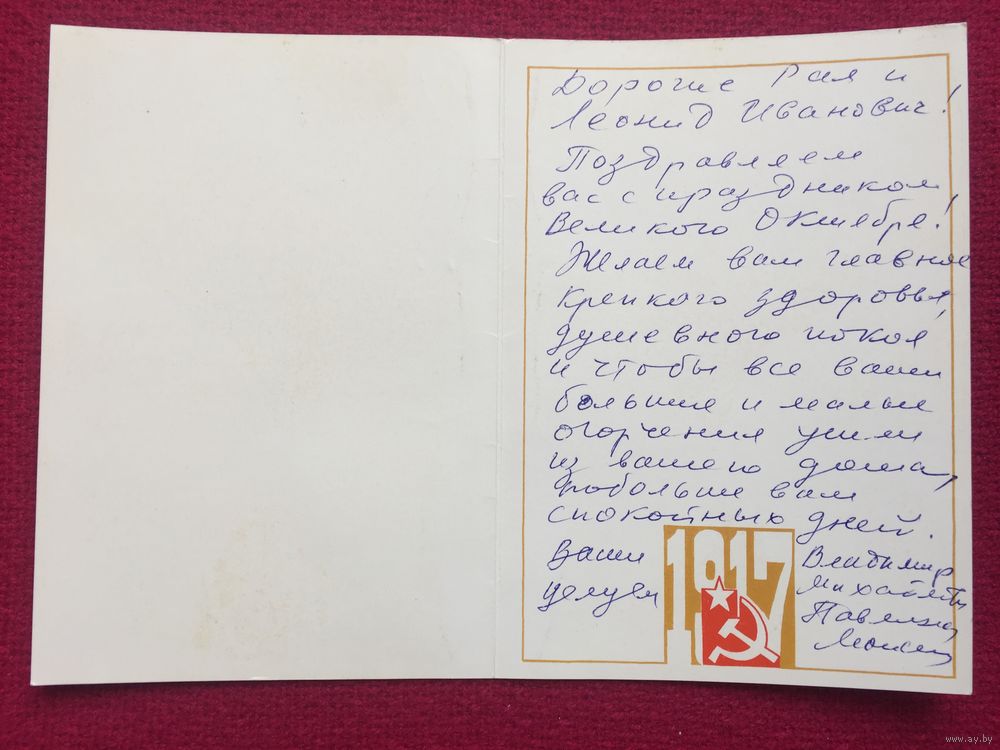 Дорогие Рая и
Леонид Иванович!
Поздравляем
вас с праздником
Великого Октября!
Желаем вам главное
крепкого здоровья,
душевного покоя,
и чтобы все ваши
большие и малые
огорчения ушли
из вашего дома,
побольше вам
спокойных дней.
Ваши
целуем
1917
Владимир
www.ay.by